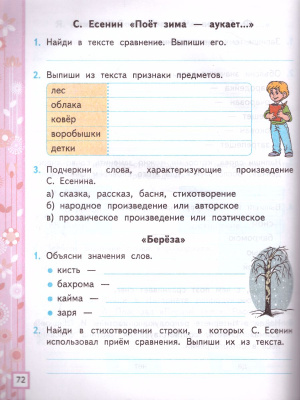 С. Есенин «Поёт зима — аукает...»
1. Найди в тексте сравнение. Выпиши его.
2. Выпиши из текста признаки предметов.
лес
облака
ковёр
воробышки
детки
3. Подчеркни слова, характеризующие произведение
С. Есенина.
а) сказка, рассказ, басня, стихотворение
б) народное произведение или авторское
в) прозаическое произведение или поэтическое
«Берёза»
1. Объясни значения слов.
• кисть —
• бахрома —
• кайма —
• заря —
2. Найди в стихотворении строки, в которых С. Есенин
использовал приём сравнения. Выпиши их из текста.
72